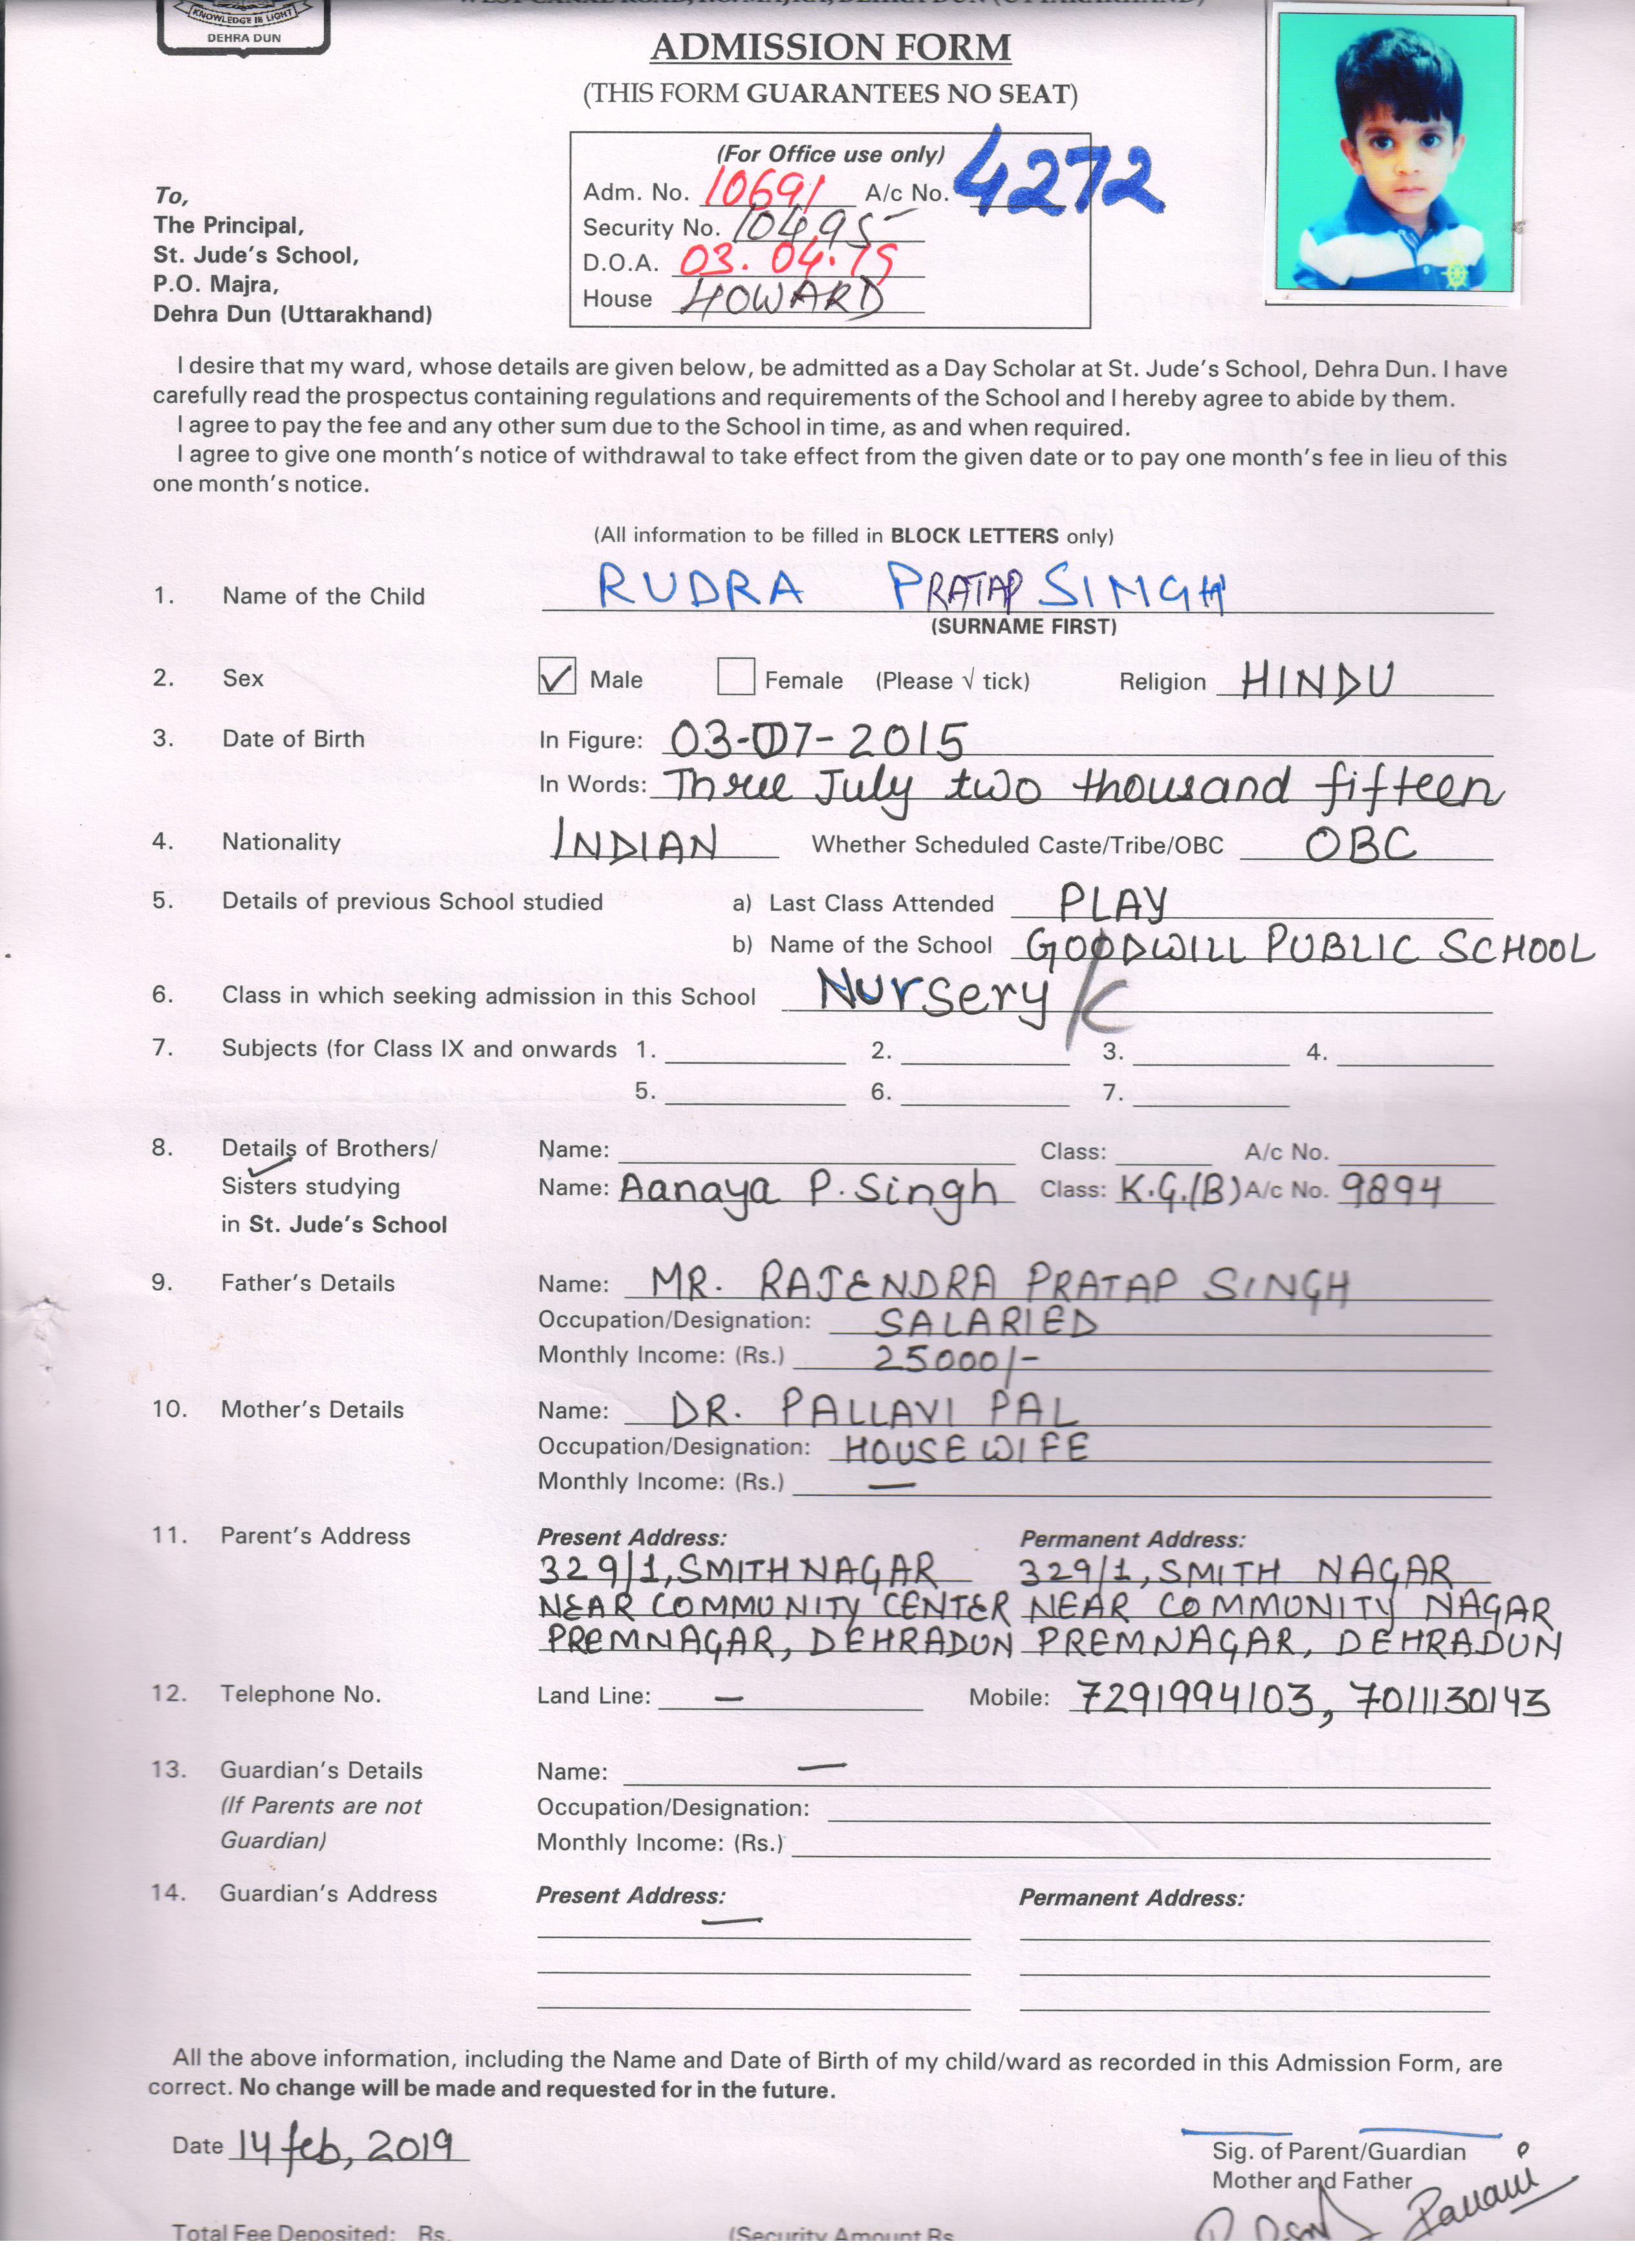 KNOWLEDGE IS LIGHT
DEHRA DUN
WEST CANAL ROAD, P.O. MAJRA, DEHRA DUN (UTTARAKHAND)
ADMISSION FORM
(THIS FORM GUARANTEES NO SEAT)
(For Office use only)
Adm. No. 10691 A/c No. 4272
Security No. 10495
D.O.A. 03.04.19
House HOWARD
To,
The Principal,
St. Jude's School,
P.O. Majra,
Dehra Dun (Uttarakhand)
I desire that my ward, whose details are given below, be admitted as a Day Scholar at St. Jude's School, Dehra Dun. I have
carefully read the prospectus containing regulations and requirements of the School and I hereby agree to abide by them.
I agree to pay the fee and any other sum due to the School in time, as and when required.
I agree to give one month's notice of withdrawal to take effect from the given date or to pay one month's fee in lieu of this
one month's notice.
(All information to be filled in BLOCK LETTERS only)
1. Name of the Child RUDRA PRATAP SINGH
(SURNAME FIRST)
2. Sex ✓ Male Female (Please √ tick) Religion HINDU
3. Date of Birth In Figure: 03-07-2015
In Words: Three July two thousand fifteen
4. Nationality INDIAN Whether Scheduled Caste/Tribe/OBC OBC
5. Details of previous School studied a) Last Class Attended PLAY
b) Name of the School GOODWILL PUBLIC SCHOOL
6. Class in which seeking admission in this School Nursery
7. Subjects (for Class IX and onwards 1. 2. 3. 4.
5. 6. 7.
8. Details of Brothers/ Name: Class: A/c No.
Sisters studying Name: Aanaya P. Singh Class: K.G.(B) A/c No. 9894
in St. Jude's School
9. Father's Details Name: MR. RAJENDRA PRATAP SINGH
Occupation/Designation: SALARIED
Monthly Income: (Rs.) 25000/-
10. Mother's Details Name: DR. PALLAVI PAL
Occupation/Designation: HOUSE WIFE
Monthly Income: (Rs.) —
11. Parent's Address Present Address: Permanent Address:
329/1, SMITH NAGAR 329/1, SMITH NAGAR
NEAR COMMUNITY CENTER NEAR COMMUNITY NAGAR
PREMNAGAR, DEHRADUN PREMNAGAR, DEHRADUN
12. Telephone No. Land Line: — Mobile: 7291994103, 7011130143
13. Guardian's Details Name: —
(If Parents are not Occupation/Designation:
Guardian) Monthly Income: (Rs.)
14. Guardian's Address Present Address: Permanent Address:
—
All the above information, including the Name and Date of Birth of my child/ward as recorded in this Admission Form, are
correct. No change will be made and requested for in the future.
Date 14 feb, 2019
Sig. of Parent/Guardian
Mother and Father
Pallavi
Total Fee Deposited: Rs. (Security Amount Rs.